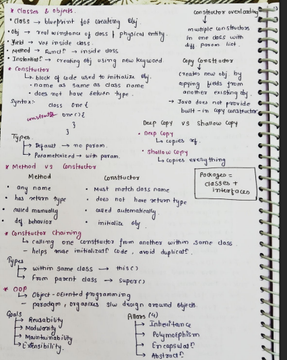 * Classes & objects.
• Class → blueprint for creating obj
• Obj → real instance of class / physical entity.
• Field → var inside class.
• Method → func inside class
• Instantiat → creating obj using new keyword
* Constructor
→ back of code used to initialise obj.
- name as same as class name
- does not have return type.
Syntax:
class One {
constructor One() {
}
}
Types.
→ Default → no param.
→ Parameterised → with param.
Constructor overloading
multiple constructors
in one class with
diff param list
Copy Constructor
creates new obj by
copying fields from
another existing obj.
→ Java does not provide
built-in copy constructor
Deep Copy vs Shallow Copy
• Deep Copy
↳ copies ref.
• Shallow Copy
↳ copies everything
* Method vs Constructor
Method
• any name
• has return type
• called manually
• def behavior
Constructor
• Must match class name
• does not have return type
• called automatically
• initialise obj
Packages =
classes +
interfaces
* Constructor Chaining
↳ calling one constructor from another within same class
- helps reuse initializat code, avoid duplicat.
Types
→ within same class → this()
→ From parent class → super()
* OOP
↳ Object-oriented programming
- paradigm, organises s/w design around objects.
Goals
→ Readability
→ Modularity
→ Maintainability
→ Extensibility.
Pillars (4)
→ Inheritance
→ Polymorphism
→ Encapsulat
→ Abstract